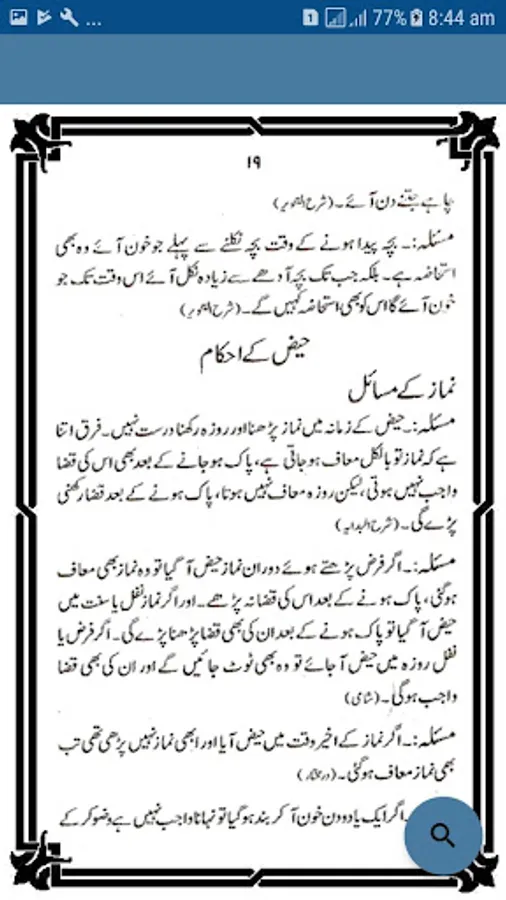 ... 1 77% 8:44 am
۱۹
چاہے جتنے دن آئے۔ (شرح التنویر)
مسئلہ:۔ بچہ پیدا ہونے کے وقت بچہ نکلنے سے پہلے جو خون آئے وہ بھی
استحاضہ ہے۔ بلکہ جب تک بچہ آدھے سے زیادہ نکل آئے اس وقت تک جو
خون آئے گا اس کو بھی استحاضہ کہیں گے۔ (شرح التنویر)
حیض کے احکام
نماز کے مسائل
مسئلہ:۔ حیض کے زمانہ میں نماز پڑھنا اور روزہ رکھنا درست نہیں۔ فرق اتنا
ہے کہ نماز تو بالکل معاف ہو جاتی ہے، پاک ہو جانے کے بعد بھی اس کی قضا
واجب نہیں ہوتی، لیکن روزہ معاف نہیں ہوتا، پاک ہونے کے بعد قضا رکھنی
پڑے گی۔ (شرح البدایہ)
مسئلہ:۔ اگر فرض پڑھتے ہوئے دوران نماز حیض آ گیا تو وہ نماز بھی معاف
ہو گئی، پاک ہونے کے بعد اس کی قضا نہ پڑھے۔ اور اگر نماز نفل یا سنت میں
حیض آ گیا تو پاک ہونے کے بعد ان کی بھی قضا پڑھنا پڑے گی۔ اگر فرض یا
نفل روزہ میں حیض آ جائے تو وہ بھی ٹوٹ جائیں گے اور ان کی بھی قضا
واجب ہوگی۔ (شامی)
مسئلہ:۔ اگر نماز کے اخیر وقت میں حیض آیا اور ابھی نماز نہیں پڑھی تھی تب
بھی نماز معاف ہو گئی۔ (در مختار)
اگر ایک یا دو دن خون آ کر بند ہو گیا تو نہانا واجب نہیں ہے وضو کر کے